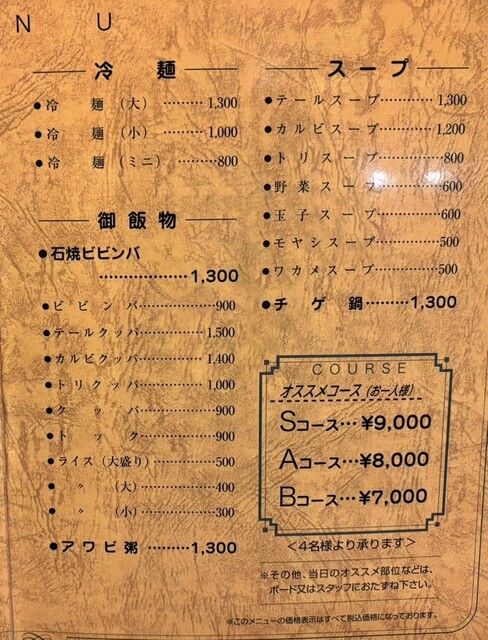 N U
冷 麺
●冷 麺(大)………1,300
●冷 麺(小)………1,000
●冷 麺(ミニ)………800
御 飯 物
●石焼ビビンバ
………………1,300
●ビビンバ…………900
●テールクッパ…………1,500
●カルビクッパ…………1,400
●トリクッパ…………1,000
●クッパ…………900
●トック…………900
●ライス(大盛り)…………500
● 〃 (大)…………400
● 〃 (小)…………300
●アワビ粥………1,300
スープ
●テールスープ…………1,300
●カルビスープ…………1,200
●トリスープ…………800
●野菜スープ…………600
●玉子スープ…………600
●モヤシスープ…………500
●ワカメスープ…………500
●チゲ鍋………1,300
COURSE
オススメコース(お一人様)
Sコース…¥9,000
Aコース…¥8,000
Bコース…¥7,000
<4名様より承ります>
※その他、当日のオススメ部位などは、
ボード又はスタッフにおたずね下さい。
※このメニューの価格表示はすべて税込価格になっております。